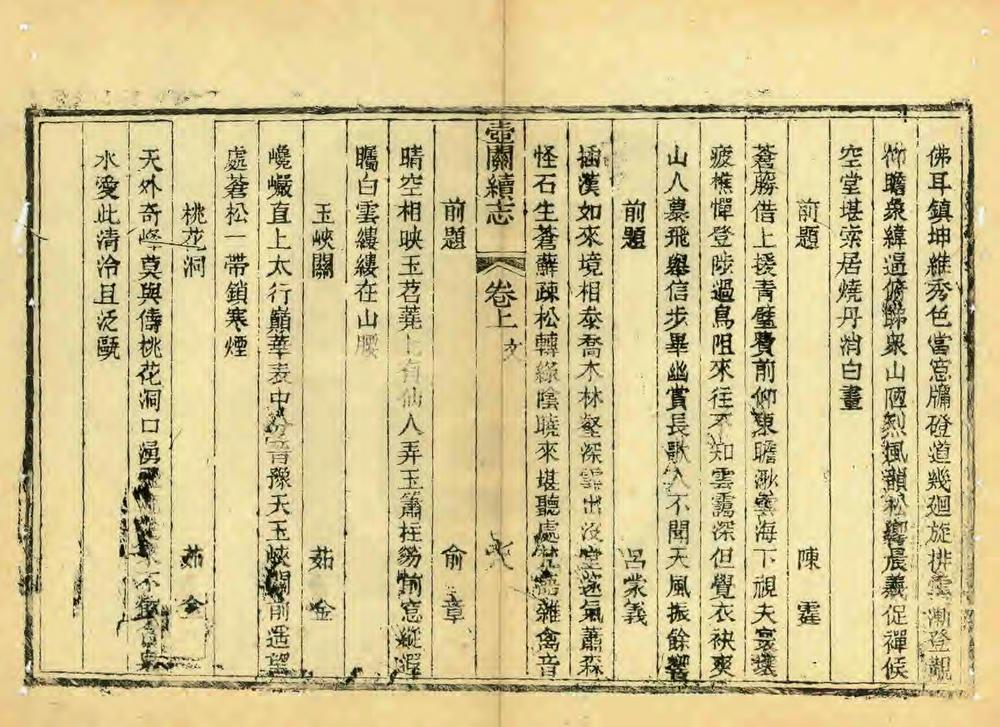 佛耳鎮坤維秀色當窓牖磴道幾廻旋排雲漸登覯
仰瞻衆緯逼俯睇衆山陋烈風韻松響晨羲促禪候
空堂堪索居燒丹消白晝
前題 陳霆
蒼藤借上援青壁費前仰東瞻渺雲海下視夫寰壤
疲樵憚登陟過鳥阻來往不知雲靄深但覺衣袂爽
山人慕飛舉信步畢幽賞長歌人不聞天風振餘響
前題 呂蒙義
插漢如來境相泰喬木林壑深雲出沒 氣蕭森
怪石生蒼蘚疎松轉綠陰曉來堪聽處 雜禽音
壺關續志 卷上 文
前題 俞章
晴空相映玉苕蕘上有仙人弄玉簫柱笏前窓縱遐
矚白雲縷縷在山腰
玉峽關 茹金
巉巖直上太行巔華表中分晉豫天玉峽關前遥望
處蒼松一帶鎖寒煙
桃花洞 茹金
天外奇峰莫與儔桃花洞口湧 不
水愛此清泠且泛甌